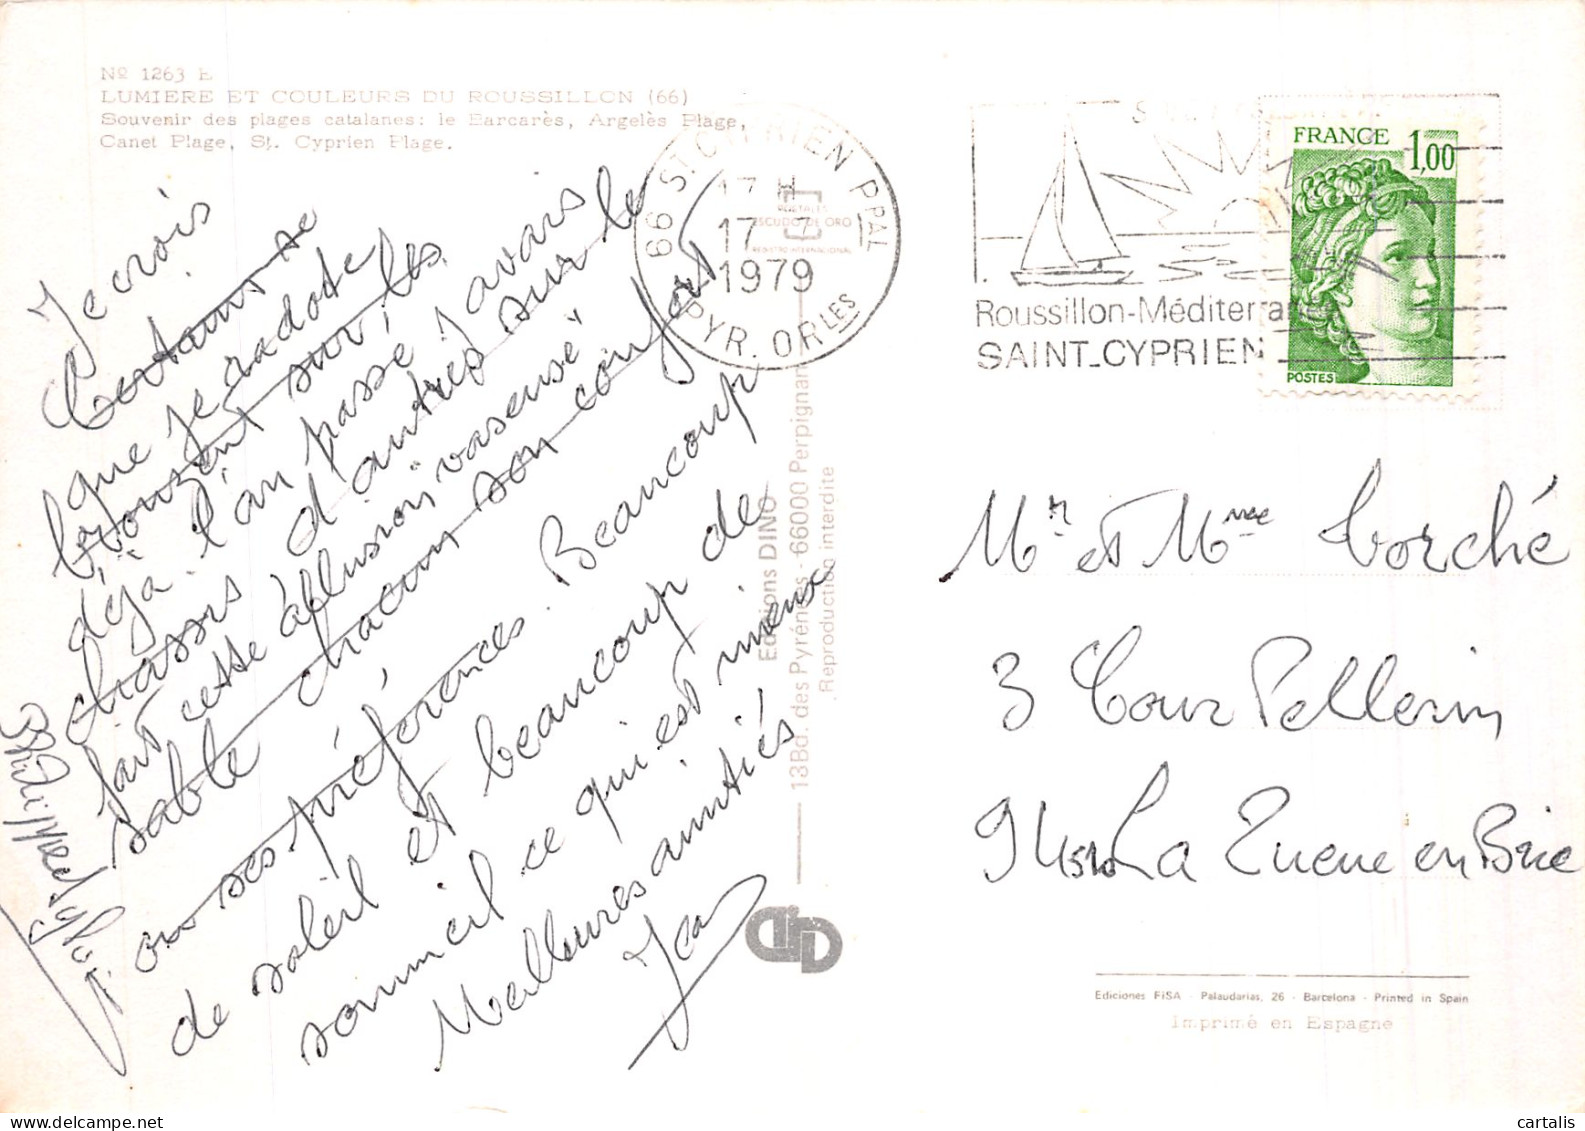 Nº 1263 E
LUMIERE ET COULEURS DU ROUSSILLON (66)
Souvenir des plages catalanes: le Barcarès, Argelès Plage,
Canet Plage, St. Cyprien Plage.
66 ST CYPRIEN PPAL
17 H
17 - 7
1979
PYR. ORLES
ESCUDO DE ORO
Roussillon-Méditerranée
SAINT-CYPRIEN
FRANCE 1,00
POSTES
Je crois
Certains se
que je radote
bronzent sur les
déjà. l'an passé j'avais
chassis d'autres sur le
fait cette allusion "vaseuse"
sable chacun son confort
ou ses préférences. Beaucoup
de soleil et beaucoup de
sommeil ce qui est mieux
Meilleures amitiés
Jean
Editions DINO
13Bd. des Pyrénées - 66000 Perpignan
Reproduction interdite
Mr et Mme Torché
3 Cour Pellerin
94510 La Queue en Brie
Ediciones FISA - Palaudarias, 26 - Barcelona - Printed in Spain
Imprimé en Espagne
cartalis